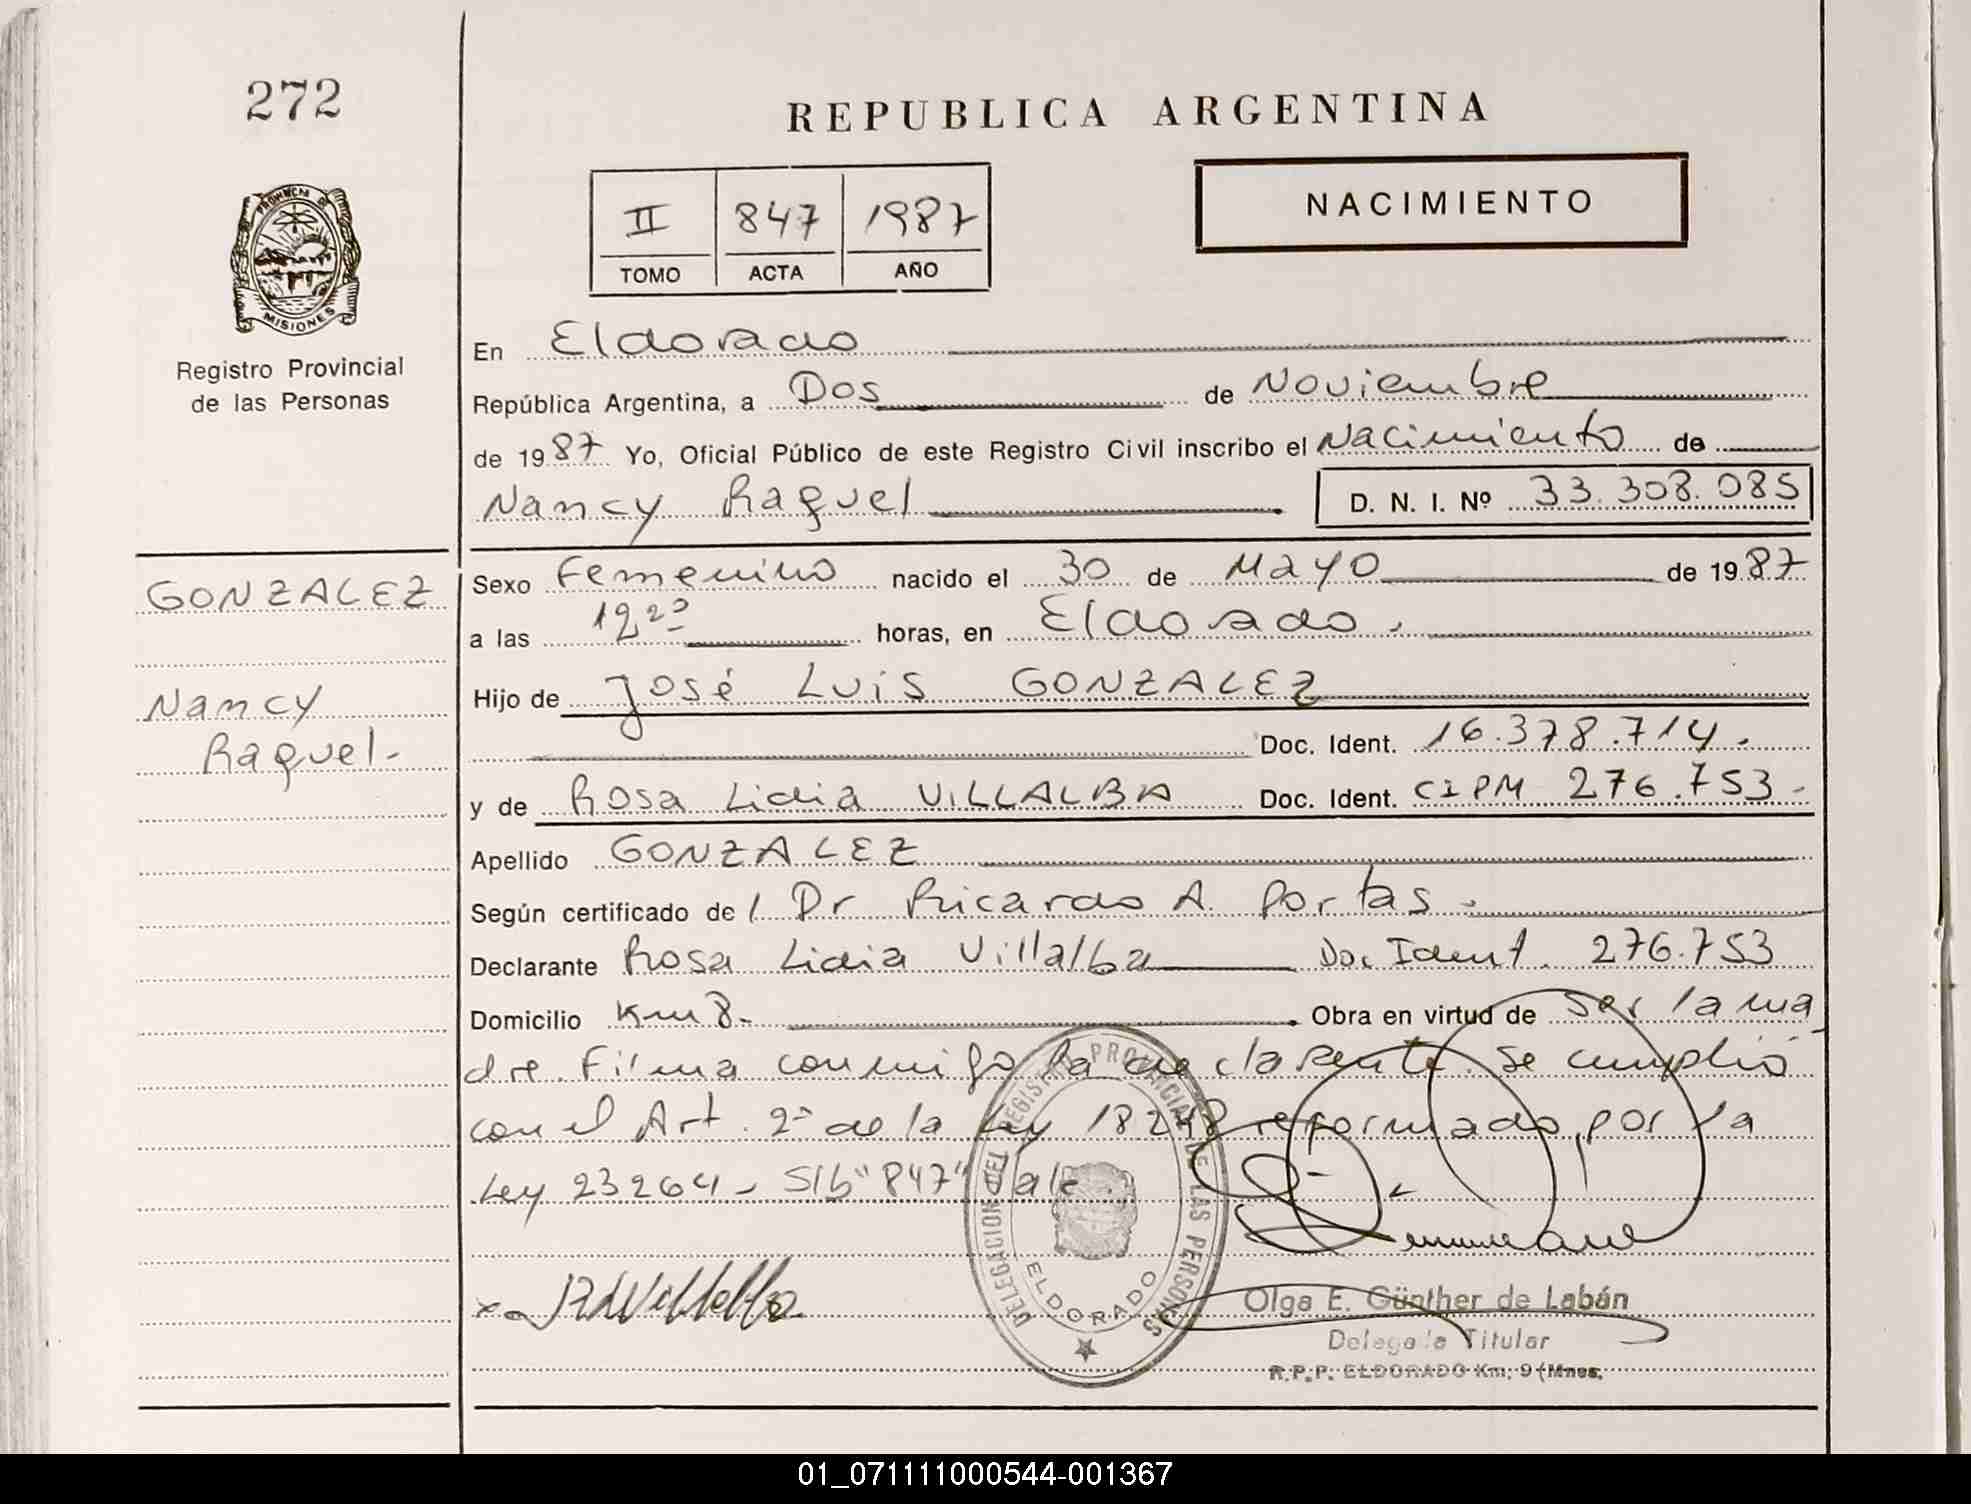 272
REPUBLICA ARGENTINA
PROVINCIA DE
MISIONES
Registro Provincial
de las Personas
II 847 1987
TOMO ACTA AÑO
NACIMIENTO
En Eldorado
República Argentina, a Dos de Noviembre
de 1987 Yo, Oficial Público de este Registro Civil inscribo el Nacimiento de
Nancy Raquel D. N. I. Nº 33.308.085
GONZALEZ
Nancy
Raquel-
Sexo Femenino nacido el 30 de Mayo de 1987
a las 12 20 horas, en Eldorado.
Hijo de José Luis GONZALEZ
Doc. Ident. 16.378.714.
y de Rosa Lidia VILLALBA Doc. Ident. CIPM 276.753-
Apellido GONZALEZ
Según certificado de l Dr Ricardo A. Portas.
Declarante Rosa Lidia Villalba Doc Ident. 276.753
Domicilio Km 8- Obra en virtud de ser la ma
dre. Firma conmigo la declarante. Se cumplió
con el Art. 2º de la Ley 18248 reformado por la
Ley 23264- S/b "847" Vale.
DELEGACION DEL REGISTRO PROVINCIAL DE LAS PERSONAS
ELDORADO
Olga E. Günther de Labán
Delegada Titular
R.P.P. ELDORADO Km. 9 (Mnes.
01_071111000544-001367